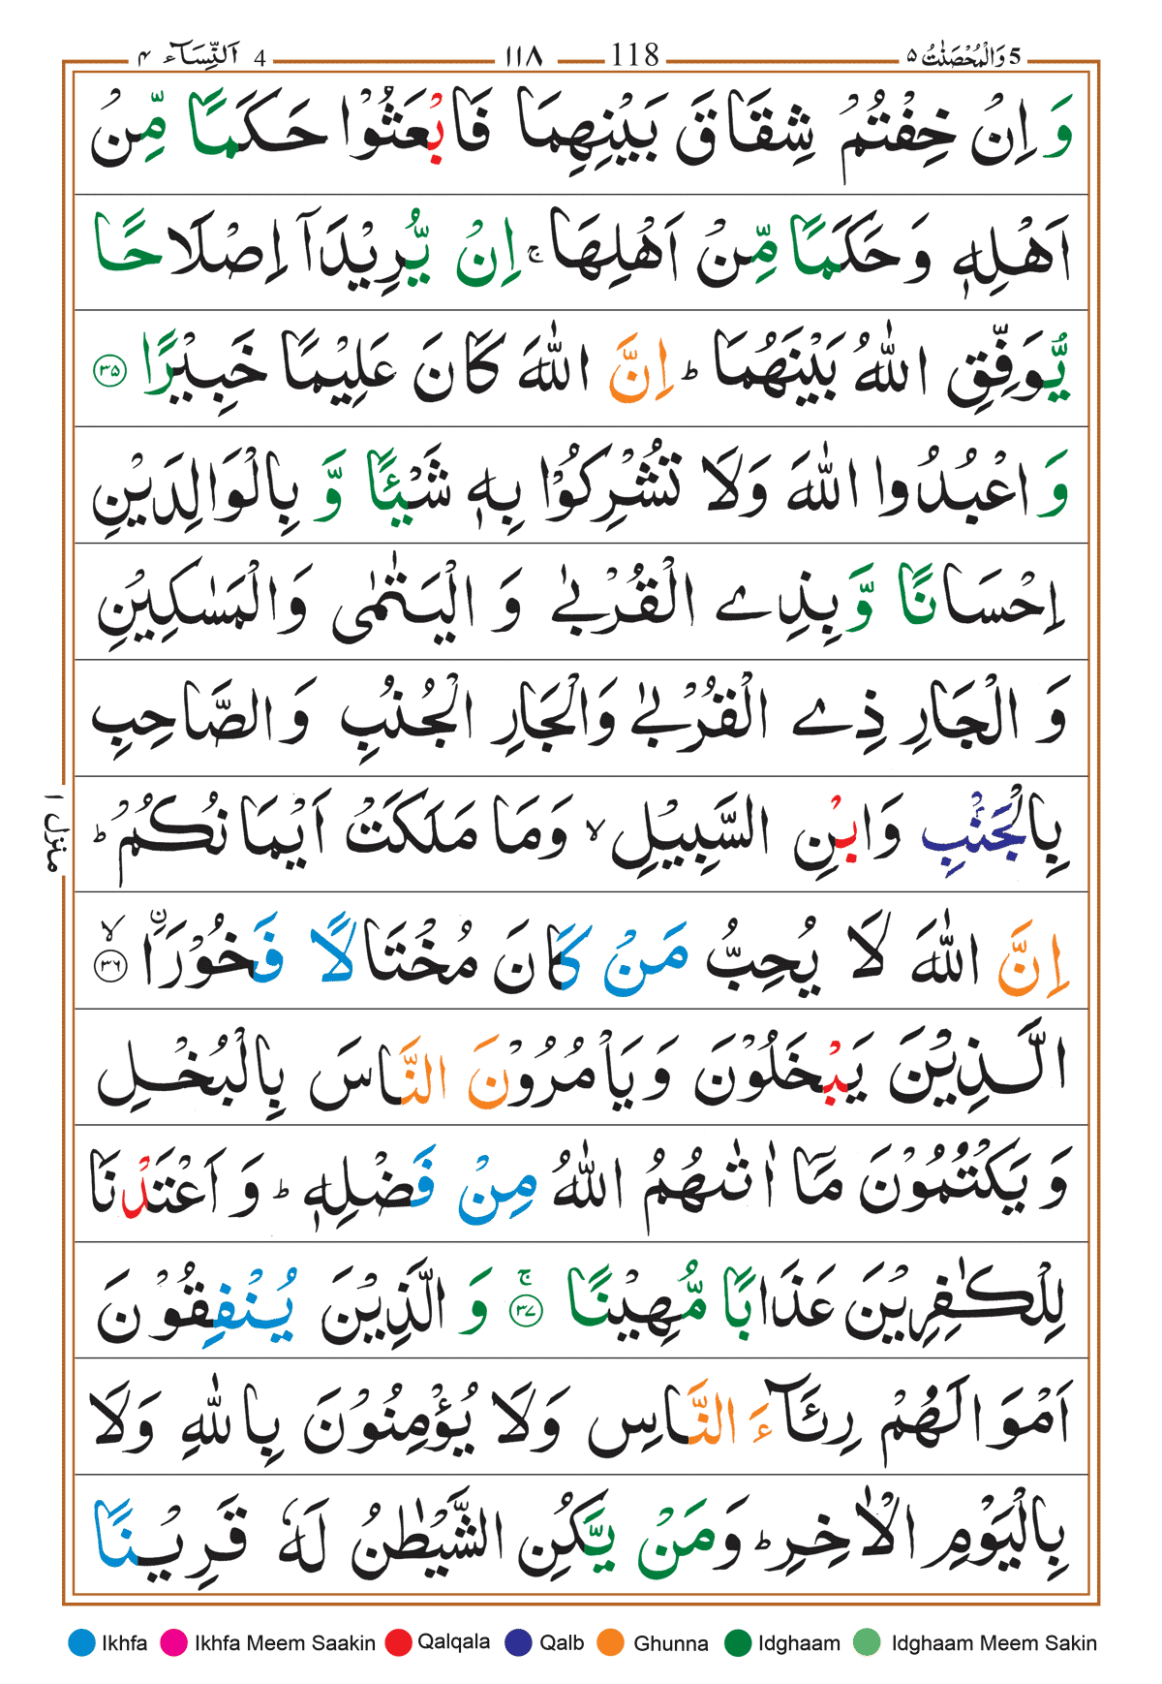 5 وَالْمُحْصَنٰتُ ۵ 118 ۱۱۸ 4 اَلنِّسَآء ۴
وَاِنْ خِفْتُمْ شِقَاقَ بَيْنِهِمَا فَابْعَثُوْا حَكَمًا مِّنْ
اَهْلِهٖ وَحَكَمًا مِّنْ اَهْلِهَا ۚ اِنْ يُّرِيْدَآ اِصْلَاحًا
يُّوَفِّقِ اللّٰهُ بَيْنَهُمَا ؕ اِنَّ اللّٰهَ كَانَ عَلِيْمًا خَبِيْرًا ۝۳۵
وَاعْبُدُوا اللّٰهَ وَلَا تُشْرِكُوْا بِهٖ شَيْـًٔا وَّ بِالْوَالِدَيْنِ
اِحْسَانًا وَّبِذِے الْقُرْبٰى وَ الْيَتٰمٰى وَالْمَسٰكِيْنِ
وَ الْجَارِ ذِے الْقُرْبٰى وَالْجَارِ الْجُنُبِ وَالصَّاحِبِ
بِالْجَنْۢبِ وَابْنِ السَّبِيْلِ ۙ وَمَا مَلَكَتْ اَيْمَانُكُمْ ؕ
اِنَّ اللّٰهَ لَا يُحِبُّ مَنْ كَانَ مُخْتَالًا فَخُوْرَا۟ۙنِ ۝۳۶
الَّذِيْنَ يَبْخَلُوْنَ وَيَاْمُرُوْنَ النَّاسَ بِالْبُخْلِ
وَ يَكْتُمُوْنَ مَآ اٰتٰىهُمُ اللّٰهُ مِنْ فَضْلِهٖ ؕ وَ اَعْتَدْنَا
لِلْكٰفِرِيْنَ عَذَابًا مُّهِيْنًا ۚ۝۳۷ وَ الَّذِيْنَ يُنْفِقُوْنَ
اَمْوَالَهُمْ رِئَآءَ النَّاسِ وَلَا يُؤْمِنُوْنَ بِاللّٰهِ وَلَا
بِالْيَوْمِ الْاٰخِرِ ؕ وَمَنْ يَّكُنِ الشَّيْطٰنُ لَهٗ قَرِيْنًا
منزل ۱
Ikhfa Ikhfa Meem Saakin Qalqala Qalb Ghunna Idghaam Idghaam Meem Sakin